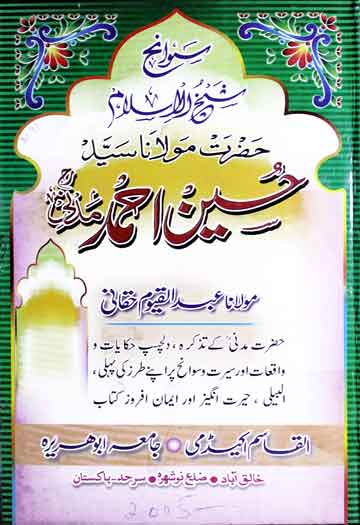 سوانح
شیخ الاسلام
حضرت مولانا سید
حسین احمد مدنیؒ
مولانا عبد القیوم حقانی
حضرت مدنیؒ کے تذکرہ، دلچسپ حکایات و
واقعات اور سیرت و سوانح پر اپنے طرز کی پہلی،
البیلی، حیرت انگیز اور ایمان افروز کتاب
القاسم اکیڈمی ● جامعہ ابوہریرہ
خالق آباد ● ضلع نوشہرہ ● سرحد - پاکستان
2005